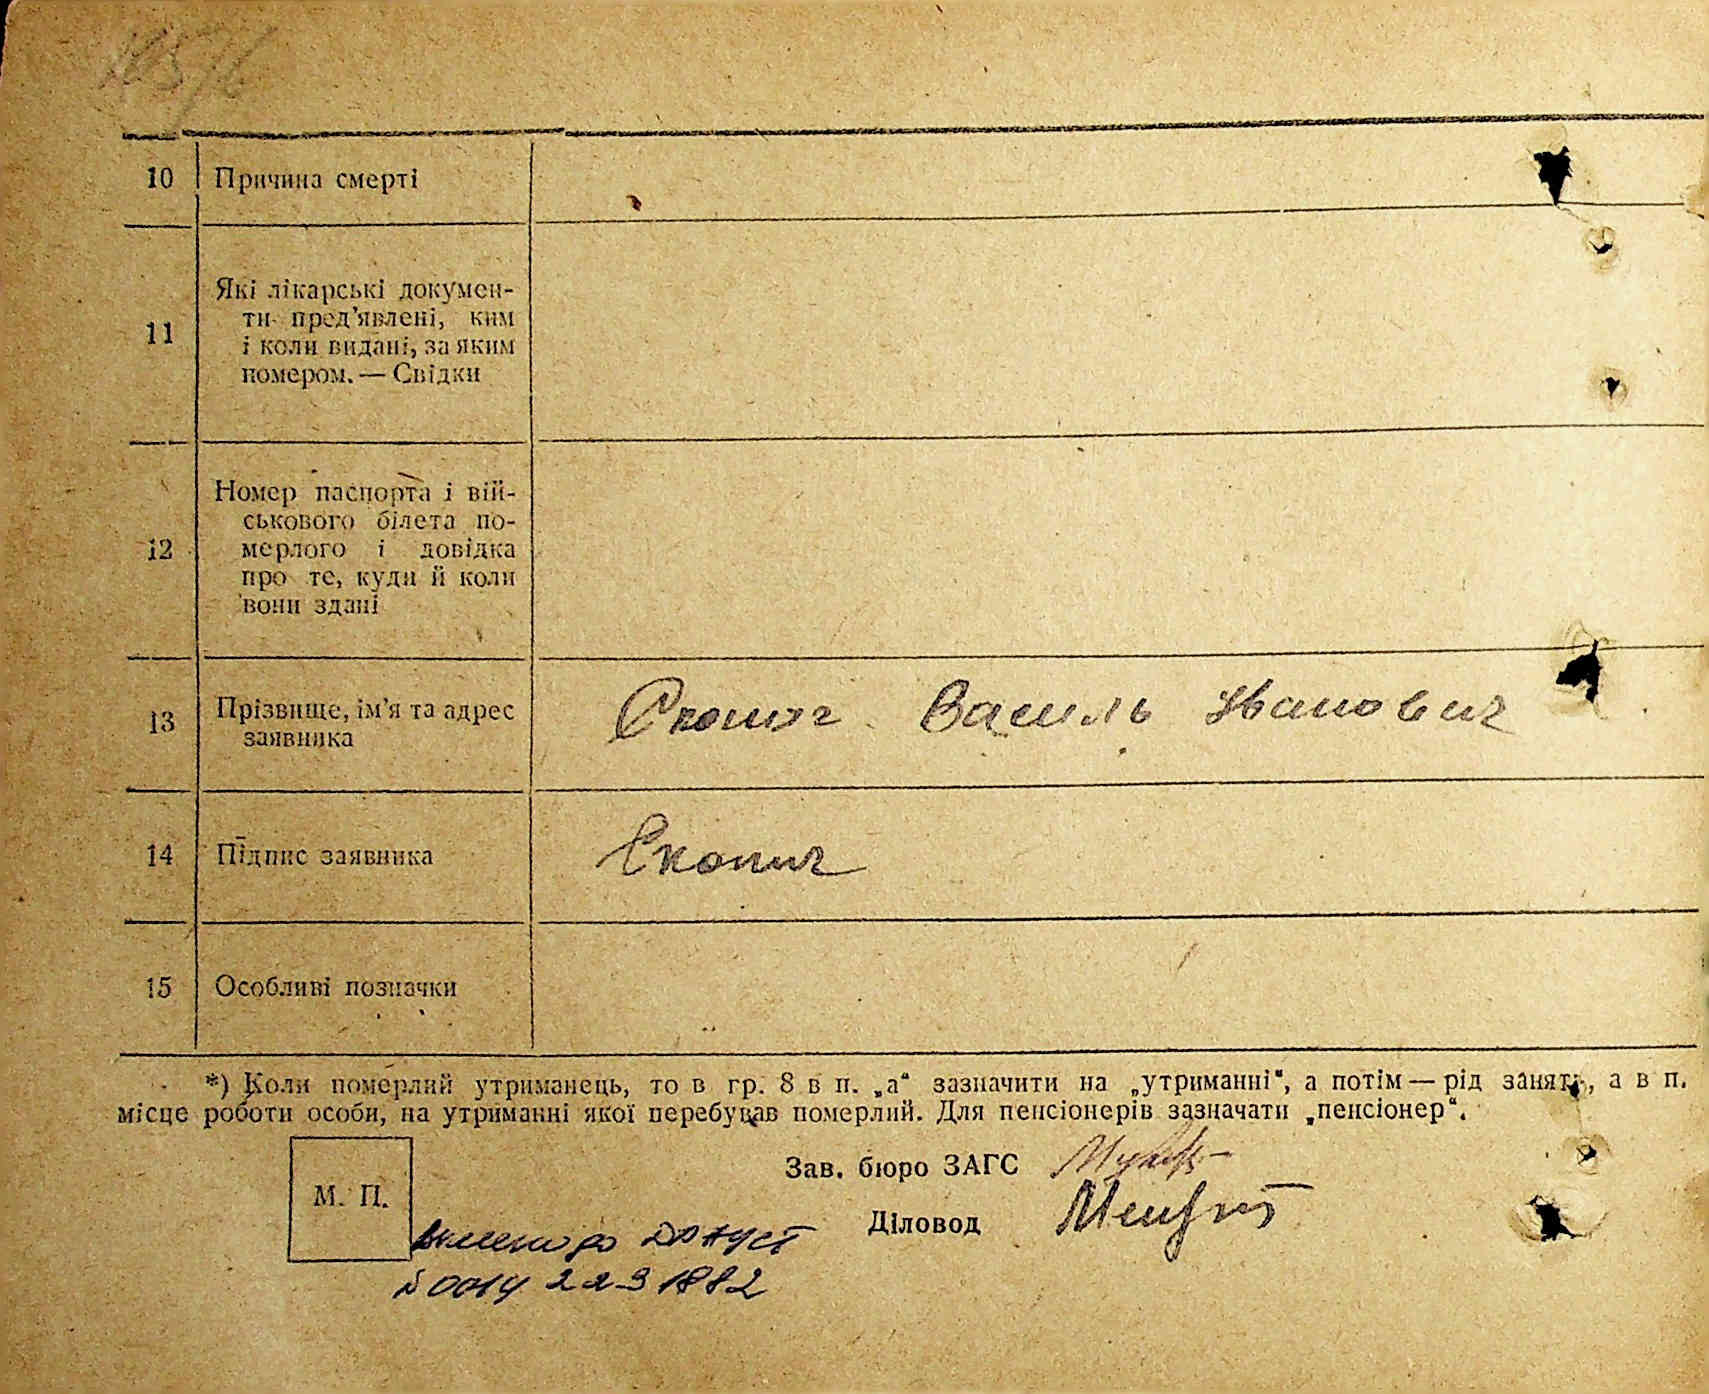 10 Причина смерті
11 Які лікарські докумен-
ти пред'явлені, ким
і коли видані, за яким
номером. — Свідки
12 Номер паспорта і вій-
ськового білета по-
мерлого і довідка
про те, куди й коли
вони здані
13 Прізвище, ім'я та адрес
заявника
Скопич Василь Іванович
14 Підпис заявника
Скопич
15 Особливі позначки
*) Коли померлий утриманець, то в гр. 8 в п. „а“ зазначити на „утриманні“, а потім — рід занять, а в п.
місце роботи особи, на утриманні якої перебував померлий. Для пенсіонерів зазначати „пенсіонер“.
М. П.
Зав. бюро ЗАГС
Діловод